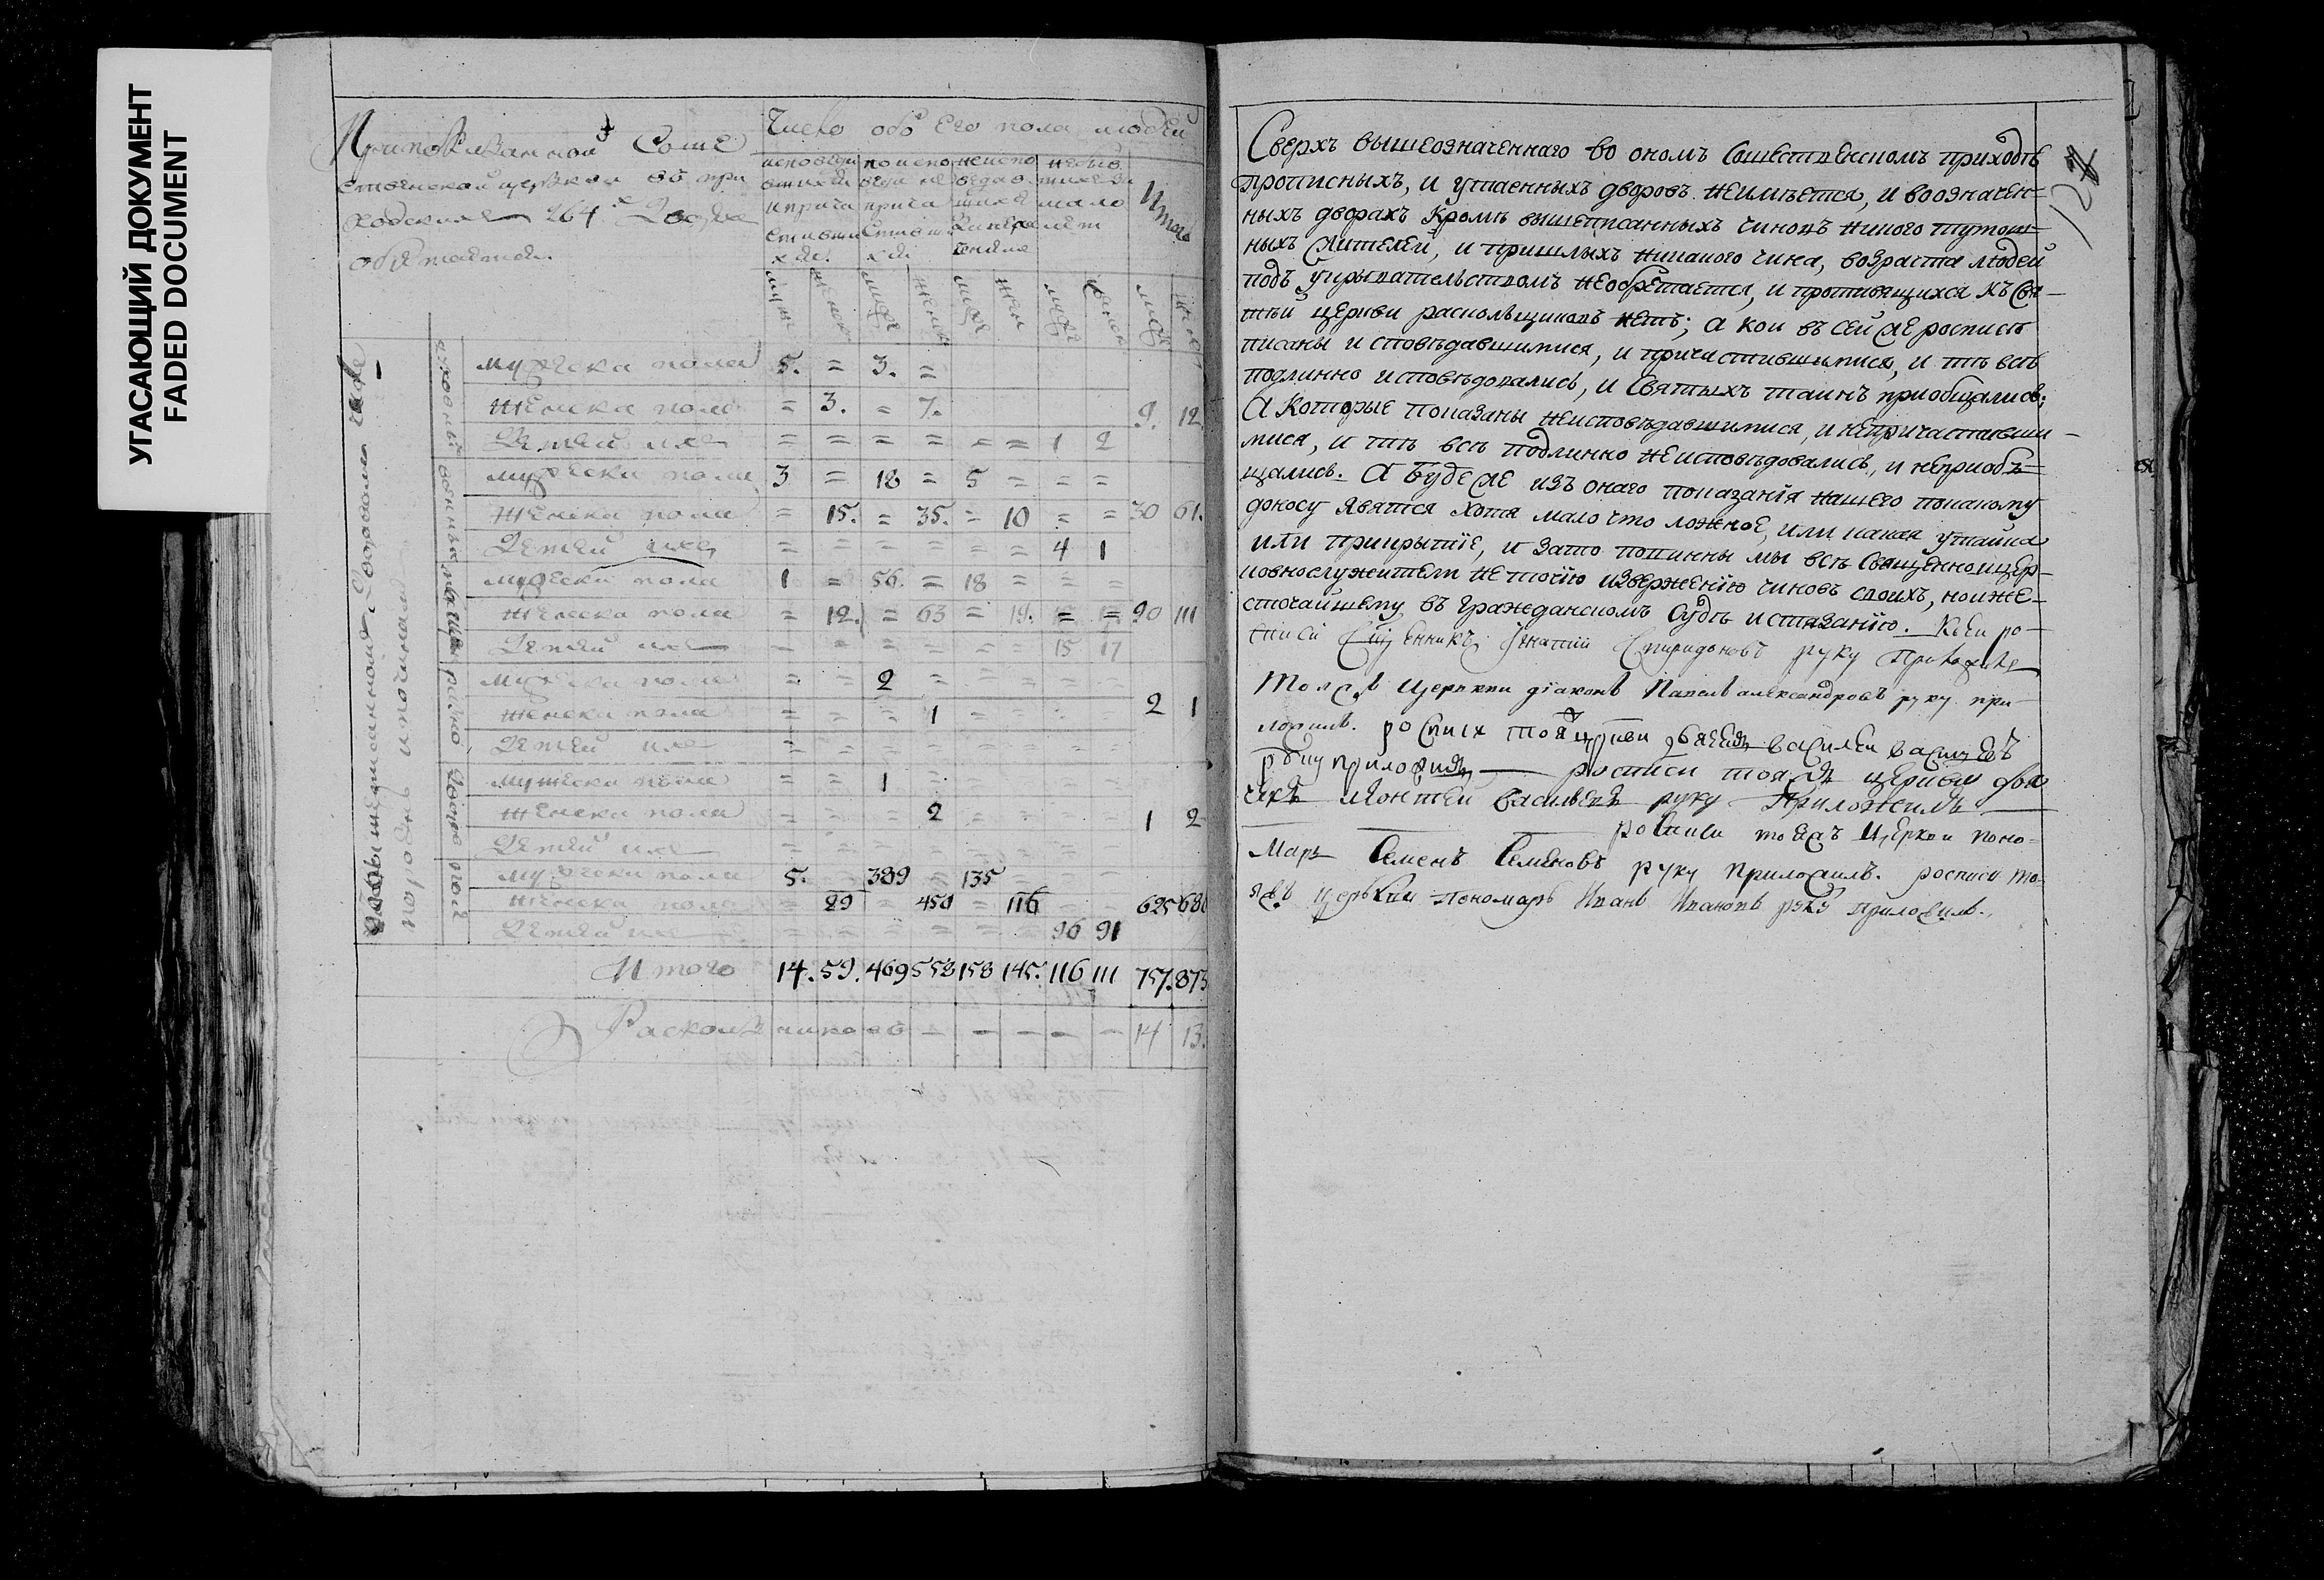 УГАСАЮЩИЙ ДОКУМЕНТ
FADED DOCUMENT
При показанной Соше
ственской церькви въ при
ходскихъ 264х дворѣхъ
обретается.
Число обоего пола людей
исповеда
вшихся
и прича
стивши
хся.
по испо
веди не
прича
стивш
хся
неиспо
ведав
шихся
мало
лет
Итого
мужеска пола 5. = 3. =
женска пола = 3. = 7.
9. 12
Детей ихъ = = = = = = 1 2
мужеска пола 3 = 18 = 5 = = =
женска пола = 15. = 35. = 10 = = 30 61.
Детей ихъ = = = = = = 4 1
мужеска пола 1 = 56. = 18 = = =
женска пола = 12. = 63 = 19. = = 90 111
Детей ихъ = = = = = = 15 17
мужеска пола = = 2 = = = = =
женска пола = = = 1 = = = = 2 1
Детей ихъ = = = = = = = =
мужеска пола = = 1 =
женска пола = = = 2 = = = = 1 2
Детей ихъ = = = = = = = =
мужеска пола 5. 389 = 135 =
женска пола = 29 = 450 = 116 625 686
Детей ихъ = = = = = = 96 91
Итого 14. 59. 469 558 158 145. 116 111 757. 873
Раскольниковъ — — — — — 14 13.
Сверхъ вышеозначеннаго во ономъ Сошественскомъ приходѣ
прописныхъ, и утаенныхъ дворовъ неимѣется, и возначен-
ныхъ дворахъ кромѣ вышеписанныхъ чиновъ никого тутош-
ныхъ жителей, и пришлыхъ никакого чина, возраста людей
подъ укрывательствомъ необретается, и противящихся къ свя-
тѣй церкви раскольщиковъ нетъ; а кои въ сей же росписи
писаны исповѣдавшимися, и причастившимися, и тѣ всѣ
подлинно исповѣдовались, и святыхъ таинъ приобщались;
А которые показаны неисповѣдавшимися, и непричаствши-
мися, и тѣ всѣ подлинно неисповѣдовались, и неприобъ-
щались. А буде же изъ онаго показанія нашего покакому
доносу явится хотя мало что ложное, или какая утайка
или прикрытіе, и зато повинны мы всѣ священноицер-
ковнослужители не точію изверженію чиновъ своихъ, но и же-
сточайшему въ гражданскомъ судѣ истязанію. К сей ро-
списи Сщенникъ Игнатий Спиридоновъ руку приложилъ
Тояжъ церькви діаконъ Павелъ александровъ руку при-
ложилъ. росписи тоя церкви дьячекъ василеи васильевъ
руку приложилъ — росписи тояжъ церькви дья
чекъ леонтеи васильевъ руку приложилъ —
росписи тояжъ церкви поно-
марь Семенъ Семеновъ руку приложилъ. росписи то-
яжъ церькви пономарь Иванъ Ивановъ руку приложилъ.